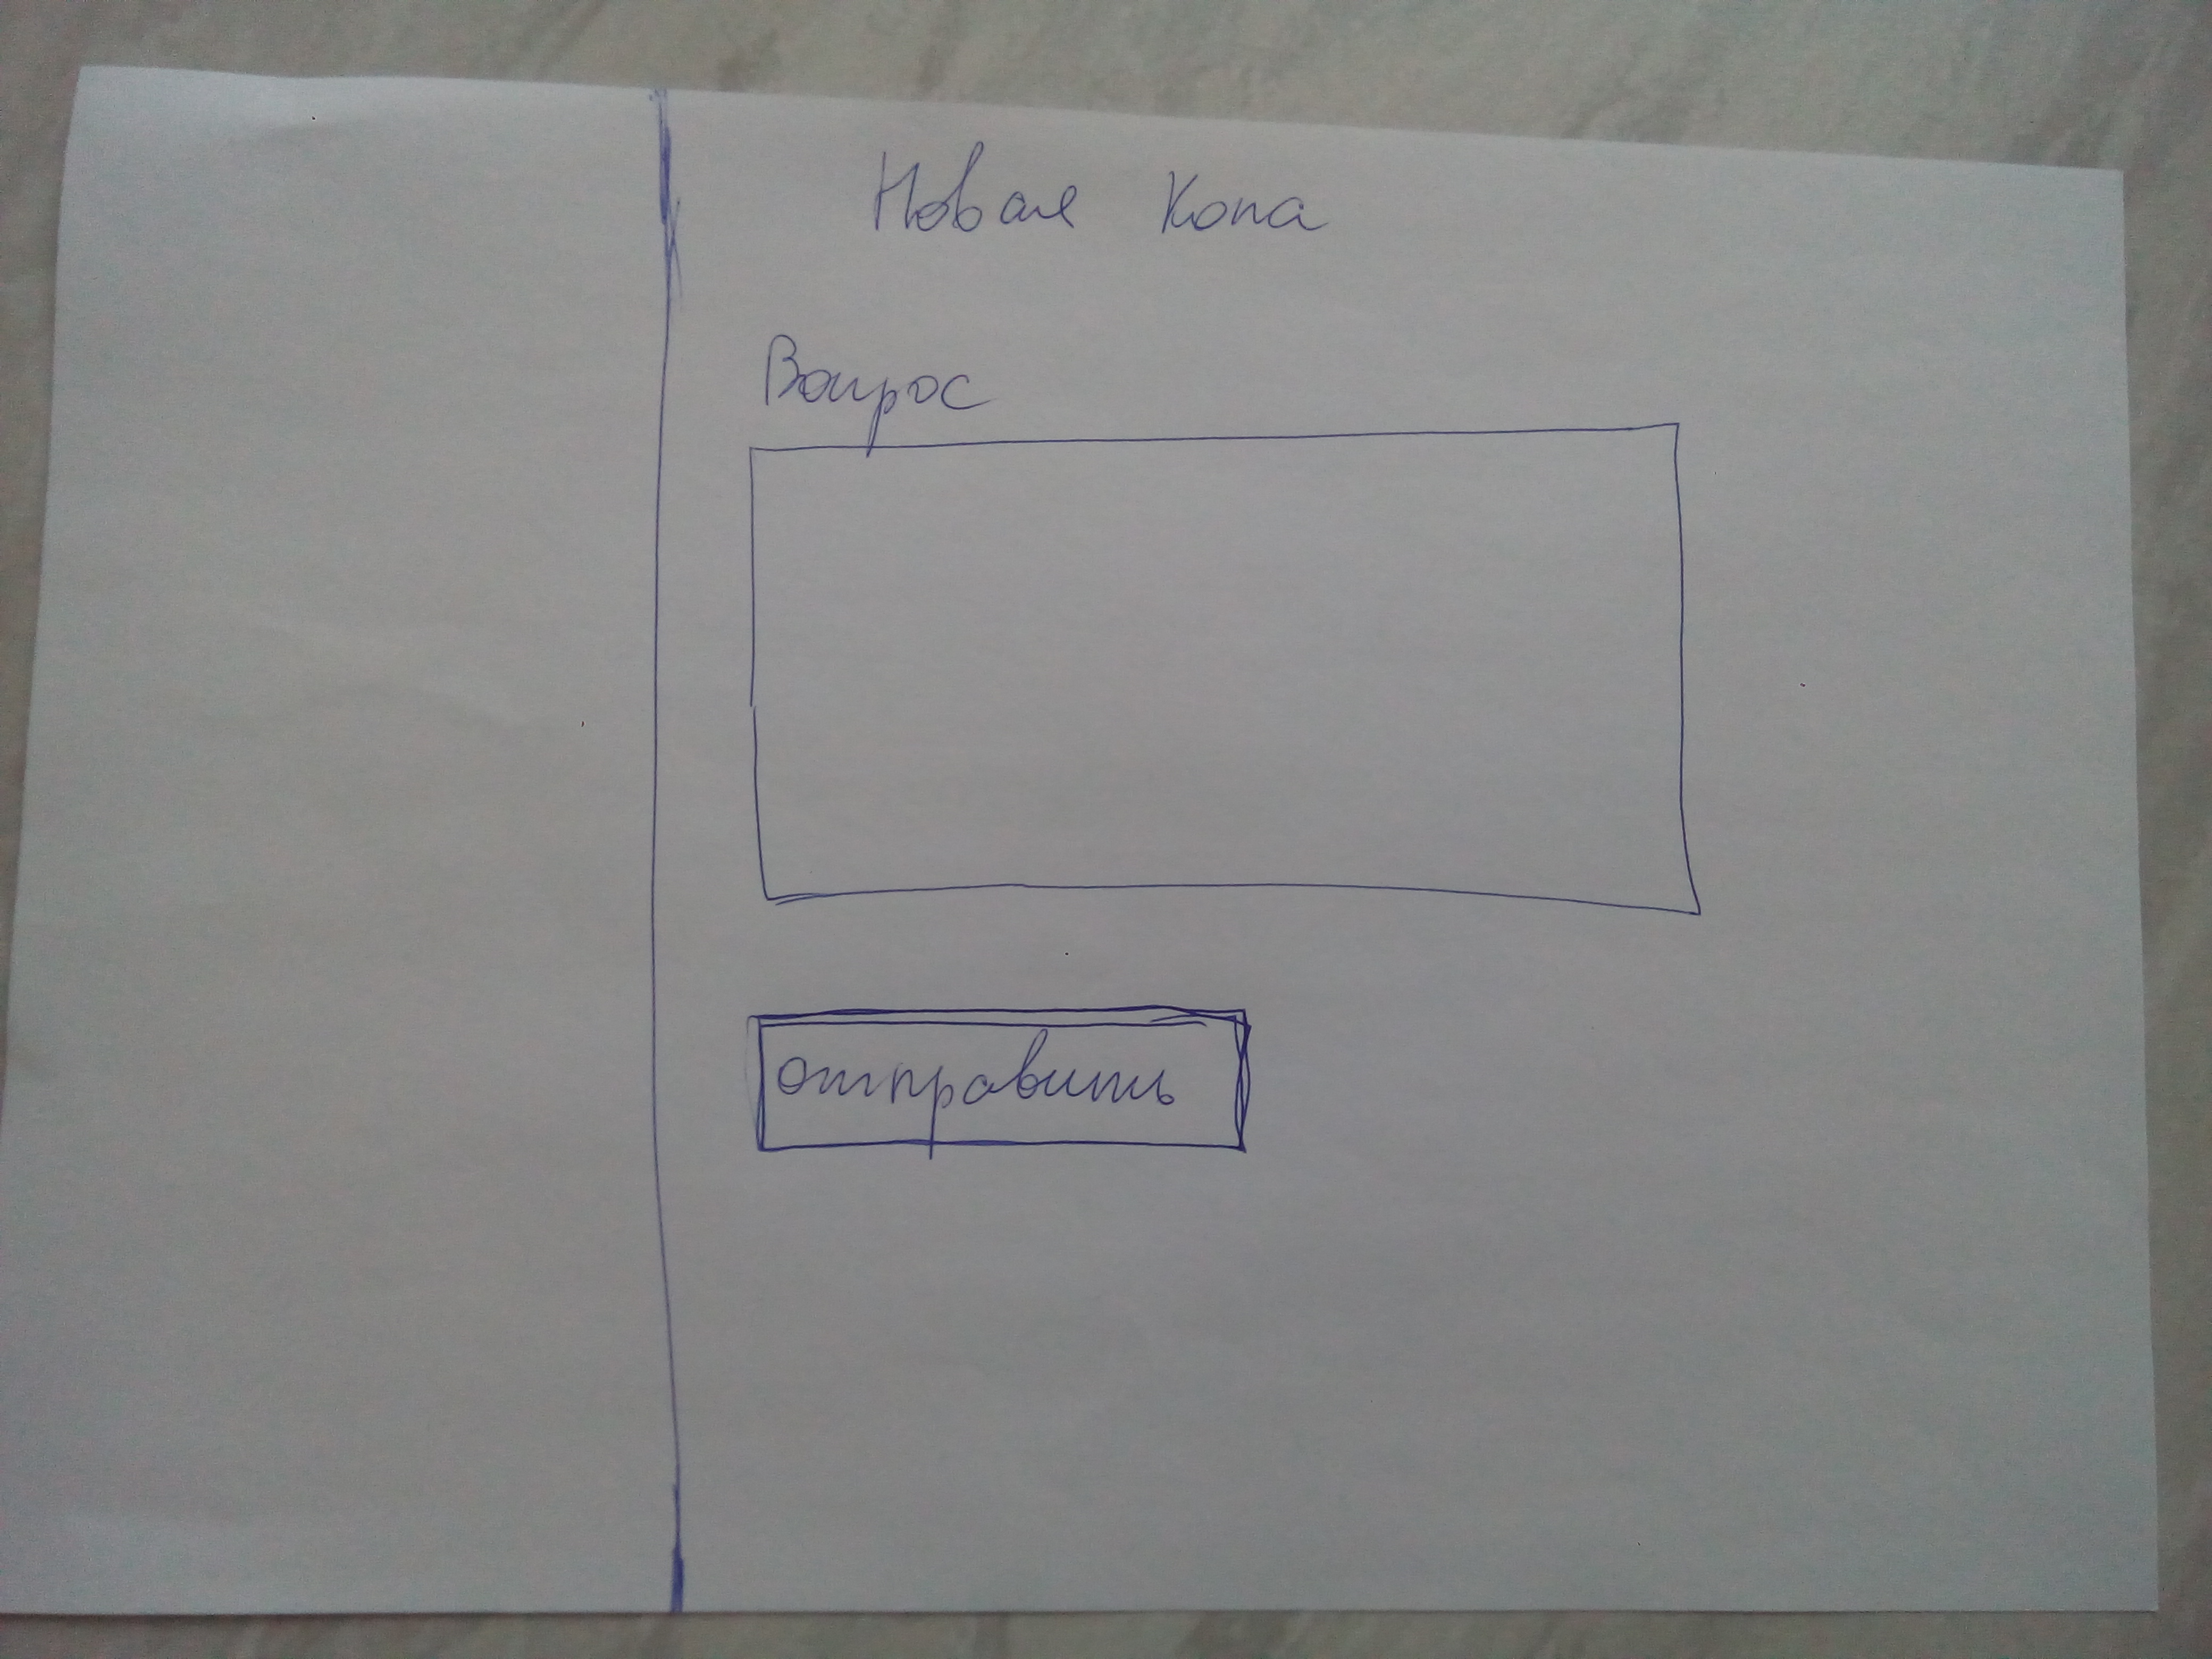 Новая Копа
Вопрос
отправить